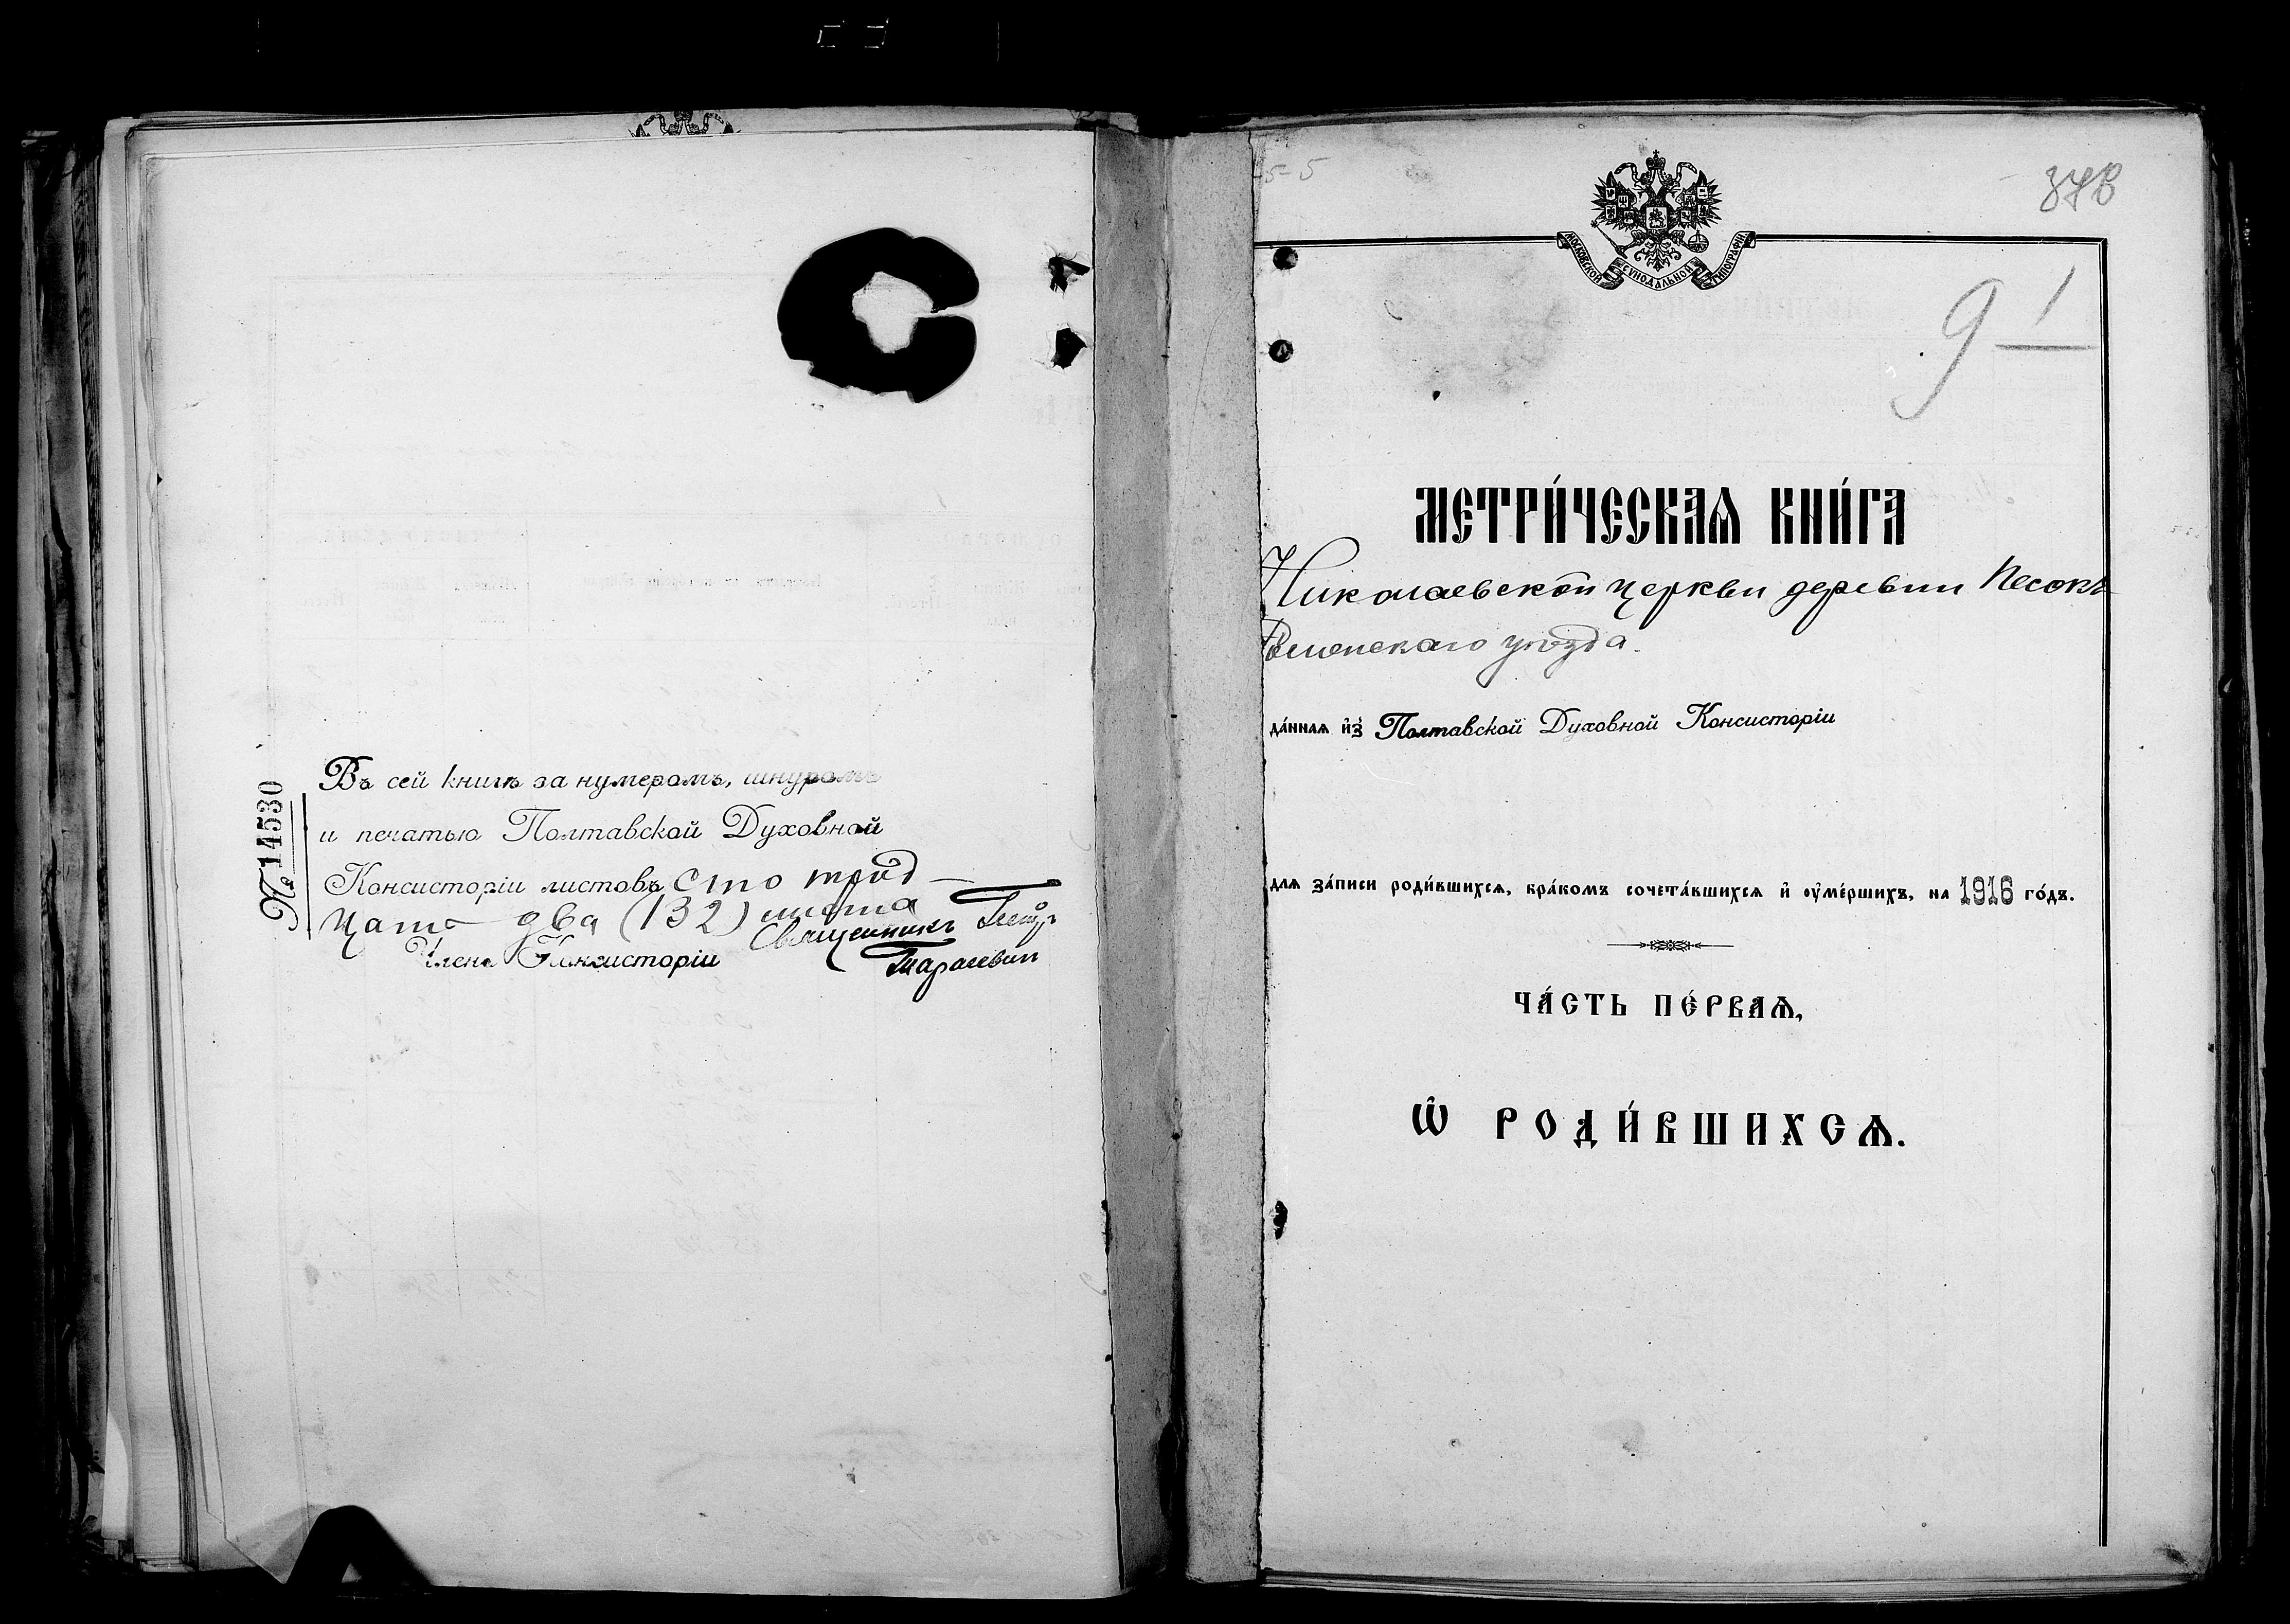 № 14530
Въ сей книгѣ за нумеромъ, шнуромъ
и печатью Полтавской Духовной
Консисторіи листовъ сто трид-
цать два (132) листа
Священникъ Петр
Членъ Консисторіи
Тарасевич
5-5
378
МОСКОВСКОЙ СѴНОДАЛЬНОЙ ТИПОГРАФІИ
9 1
МЕТРИ́ЧЕСКАѦ КНИ́ГА
Николаевской церкви деревни Песокъ
уѣзда.
да́ннаѧ и҆з̾ Полтавской Духовной Консисторіи
длѧ за́писи роди́вшихсѧ, бра́комъ сочета́вшихсѧ и҆ ᲂу҆ме́ршихъ, на 1916 го́дъ.
ЧА́СТЬ ПЕ́РВАѦ,
Ѡ҆ РОДИ́ВШИХСѦ.